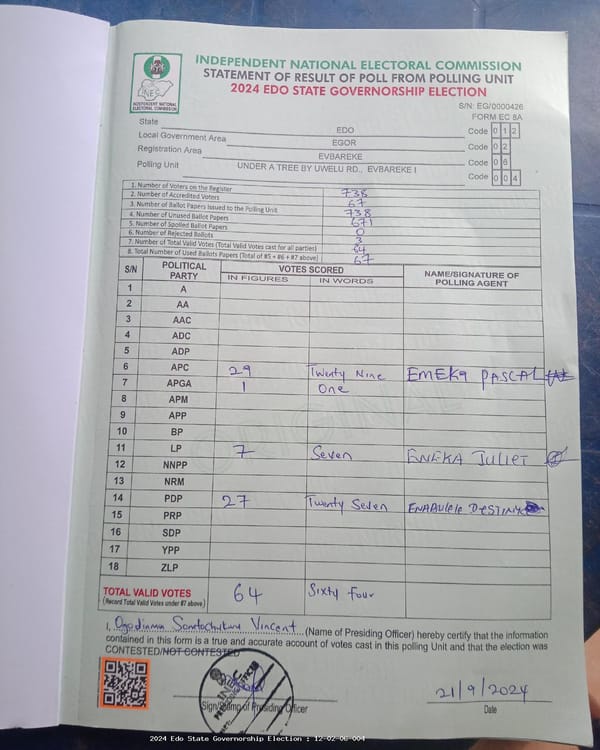 INDEPENDENT NATIONAL ELECTORAL COMMISSION
STATEMENT OF RESULT OF POLL FROM POLLING UNIT
2024 EDO STATE GOVERNORSHIP ELECTION
INEC
INDEPENDENT NATIONAL ELECTORAL COMMISSION
S/N: EG/0000426
FORM EC 8A
State EDO Code 0 1 2
Local Government Area EGOR Code 0 2
Registration Area EVBAREKE Code 0 6
Polling Unit UNDER A TREE BY UWELU RD., EVBAREKE I Code 0 0 4
1. Number of Voters on the Register 738
2. Number of Accredited Voters 67
3. Number of Ballot Papers Issued to the Polling Unit 738
4. Number of Unused Ballot Papers 671
5. Number of Spoiled Ballot Papers 0
6. Number of Rejected Ballots 3
7. Number of Total Valid Votes (Total Valid Votes cast for all parties) 64
8. Total Number of Used Ballots Papers (Total of #5 + #6 + #7 above) 67
S/N POLITICAL PARTY VOTES SCORED NAME/SIGNATURE OF POLLING AGENT
IN FIGURES IN WORDS
1 A
2 AA
3 AAC
4 ADC
5 ADP
6 APC 29 Twenty Nine EMEKA PASCAL
7 APGA 1 One
8 APM
9 APP
10 BP
11 LP 7 Seven ENEKA JULIET
12 NNPP
13 NRM
14 PDP 27 Twenty Seven DESTINY
15 PRP
16 SDP
17 YPP
18 ZLP
TOTAL VALID VOTES 64 Sixty Four
(Record Total Valid Votes under #7 above)
I, Vincent (Name of Presiding Officer) hereby certify that the information
contained in this form is a true and accurate account of votes cast in this polling Unit and that the election was
CONTESTED/NOT CONTESTED
Sign/Stamp of Presiding Officer
21/9/2024
Date
2024 Edo State Governorship Election : 12-02-06-004